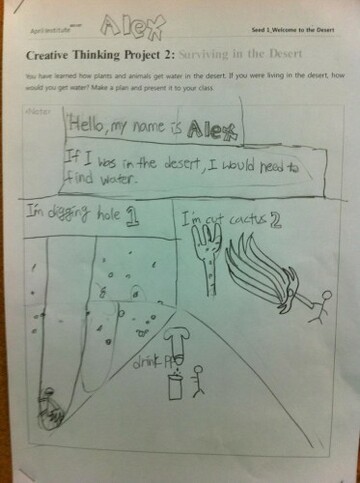 Alex
April institute
Seed 3_Welcome to the Desert
Creative Thinking Project 2: Surviving in the Desert
You have learned how plants and animals get water in the desert. If you were living in the desert, how
would you get water? Make a plan and present it to your class.
<Note>
Hello, my name is Alex
If I was in the desert, I would need to
find water.
I'm digging hole 1
I'm cut cactus 2
drink